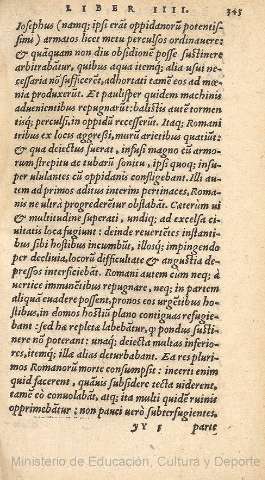 LIBER IIII. 343
Iosephus (namq; ipsi erāt oppidanorū potentis
simi) armatos licet metu perculsos ordinauere:
& quāquam non diu obsidionē posse sustinere
arbitrabātur, quibus aqua itemq; alia usui ne-
cessaria nō sufficerēt, adhortati tamē eos ad mœ-
nia produxerūt. Et paulisper quidem machinis
aduenientibus repugnarūt: balistis autē tormen
tisq; perculsi, in oppidū recesserūt. Itaq; Romani
tribus ex locis aggressi, murū arietibus quatiūt:
& qua deiectus fuerat, infusi magno cū armo-
rum strepitu ac tubarū sonitu, ipsi quoq; insu-
per ululantes cū oppidanis confligebant. Illi au-
tem ad primos aditus interim pertinaces, Roma-
nis ne ultra progrederētur obstabāt. Cæterùm ui
& multitudine superati, undiq; ad excelsa ci-
uitatis loca fugiunt: deinde reuertētes instanti-
bus sibi hostibus incumbūt, illosq; impingendo
per decliuia, locorū difficultate & angustia de-
pressos interficiebāt. Romani autem cùm neq; à
uertice imminētibus repugnare, neq; in partem
aliquā euadere possent, pronos eos urgētibus ho-
stibus, in domos hostiū plano contiguas refugie-
bant: sed hæ repletæ labebātur, q̄ pondus susti-
nere nō poterant: unaq; deiecta multas inferio-
res, itemq; illæ alias deturbabant. Ea res pluri-
mos Romanorū morte consumpsit: incerti enim
quid facerent, quāuis subsidere tecta uiderent,
tamē eò conuolabāt, atq; ita multi quidē ruinis
opprimebātur: non pauci uerò subterfugientes,
YY 1 parte
Ministerio de Educación, Cultura y Deporte